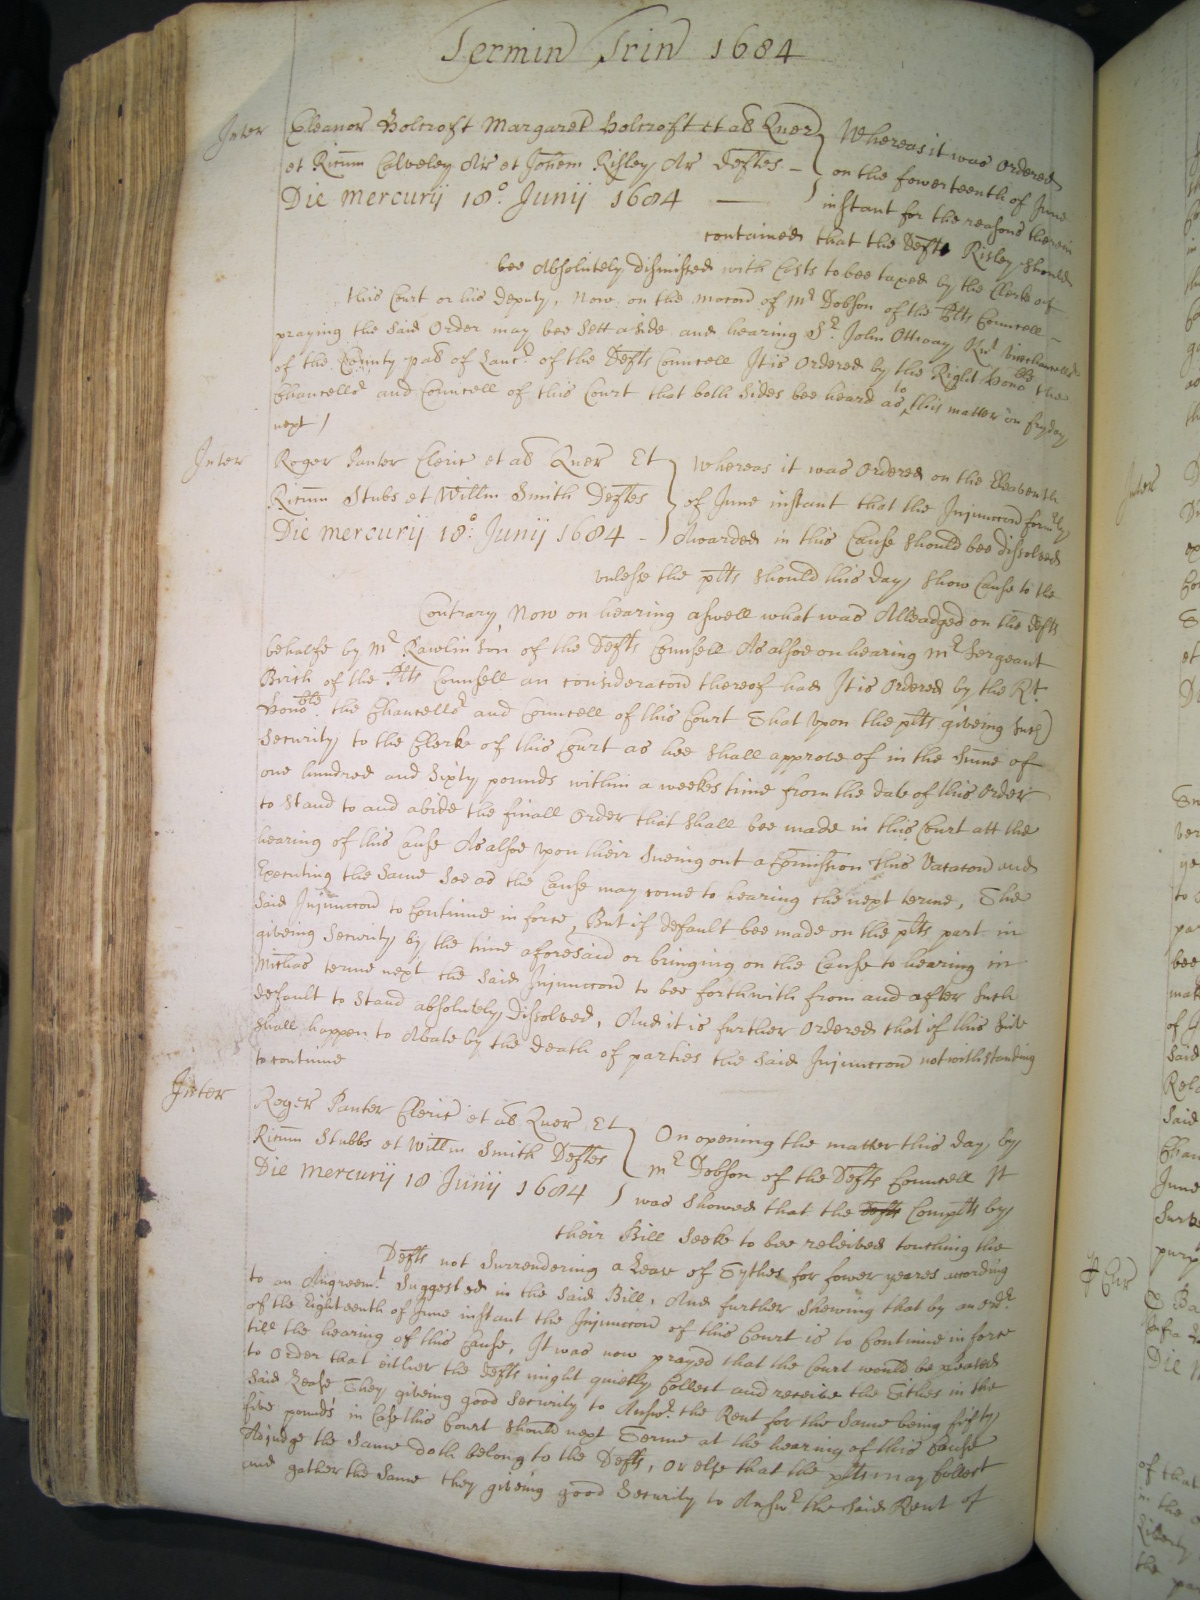 Termin Trin 1684
Inter Eleanor Holcroft Margaret Holcroft et al Quer Whereas it was ordered
et Ricum Calveley Ar et Johem Risley Ar Defts – on the fowerteenth of June
Die Mercurij 18o. Junij 1684 — instant for the reasons therein
contained that the Deft Risley should
bee Absolutely dismissed with Costs to bee taxed by the Clerke of
this Court or his deputy, Now on the mocond of Mr Dobson of the Plts Councell
praying the said Order may bee sett aside and hearing Sr. John Ottway Knt Vicechancellr
of the County pal of Lancr of the Defts Councell It is Ordered by the Right Honoble the
Chancellr and Councell of this Court that both sides bee heard as to this matter on fryday
next /
Inter Roger Panter Cleric et al Quer Et Whereas it was Ordered on the Eleaventh
Ricum Stubs et Willm Smith Deftes of June instant that the Injunccon form'ly
Die Mercurij 18o: Junij 1684 – Awarded in this Cause should bee dissolved
unlesse the plts should this day show Cause to the
Contrary, Now on hearing aswell what was Alleadged on the Defts
behalfe by Mr Rawlinson of the Defts Counsell As alsoe on hearing Mr Sergeant
Birch of the Plts Counsell an consideracon thereof had It is Ordered by the Rt.
Honoble the Chancellr and Councell of this Court That upon the plts giveing such
Security to the Clerke of this Court as hee shall approve of in the Sume of
one hundred and Sixty pounds within a weekes time from the date of this Order
to stand to and abide the finall Order that shall bee made in this Court att the
hearing of this Cause As alsoe upon their Sueing out a Comission this Vacacon and
Executing the Same Soe as the Cause may come to hearing the next terme, The
Said Injunccon to Continue in force, But if default bee made on the plts part in
giveing Security by the time aforesaid or bringing on the Cause to hearing in
Michas terme next the said Injunccon to bee forthwith from and after such
default to Stand absolutely dissolved, And it is further Ordered that if this Suit
shall happen to Abate by the death of parties the said Injunccon notwithstanding
to continue
Inter Roger Panter Cleric et al Quer Et On opening the matter this day by
Ricum Stubbs et Willm Smith Deftes Mr Dobson of the Defts Councell It
Die Mercurij 18 Junij 1684 was showed that the Defts Complts by
their Bill Seeke to bee releived touching the
Defts not Surrendering a Lease of Tythes for fower yeares according
to an Agreemt. Suggested in the said Bill, And further shewing that by an ordr.
of the Eighteenth of June instant the Injunccon of this Court is to Continue in force
till the hearing of this Cause, It was now prayed that the Court would be pleased
to Order that either the Defts might quietly Collect and receive the Tithes in the
said Lease They giveing good Security to Answr. the Rent for the same being fifty
five pounds in Case this Court should next Terme at the hearing of this Cause
Adjudge the Same doth belong to the Defts, or else that the plts may Collect
and gather the Same they giveing good Security to Answr the said Rent of